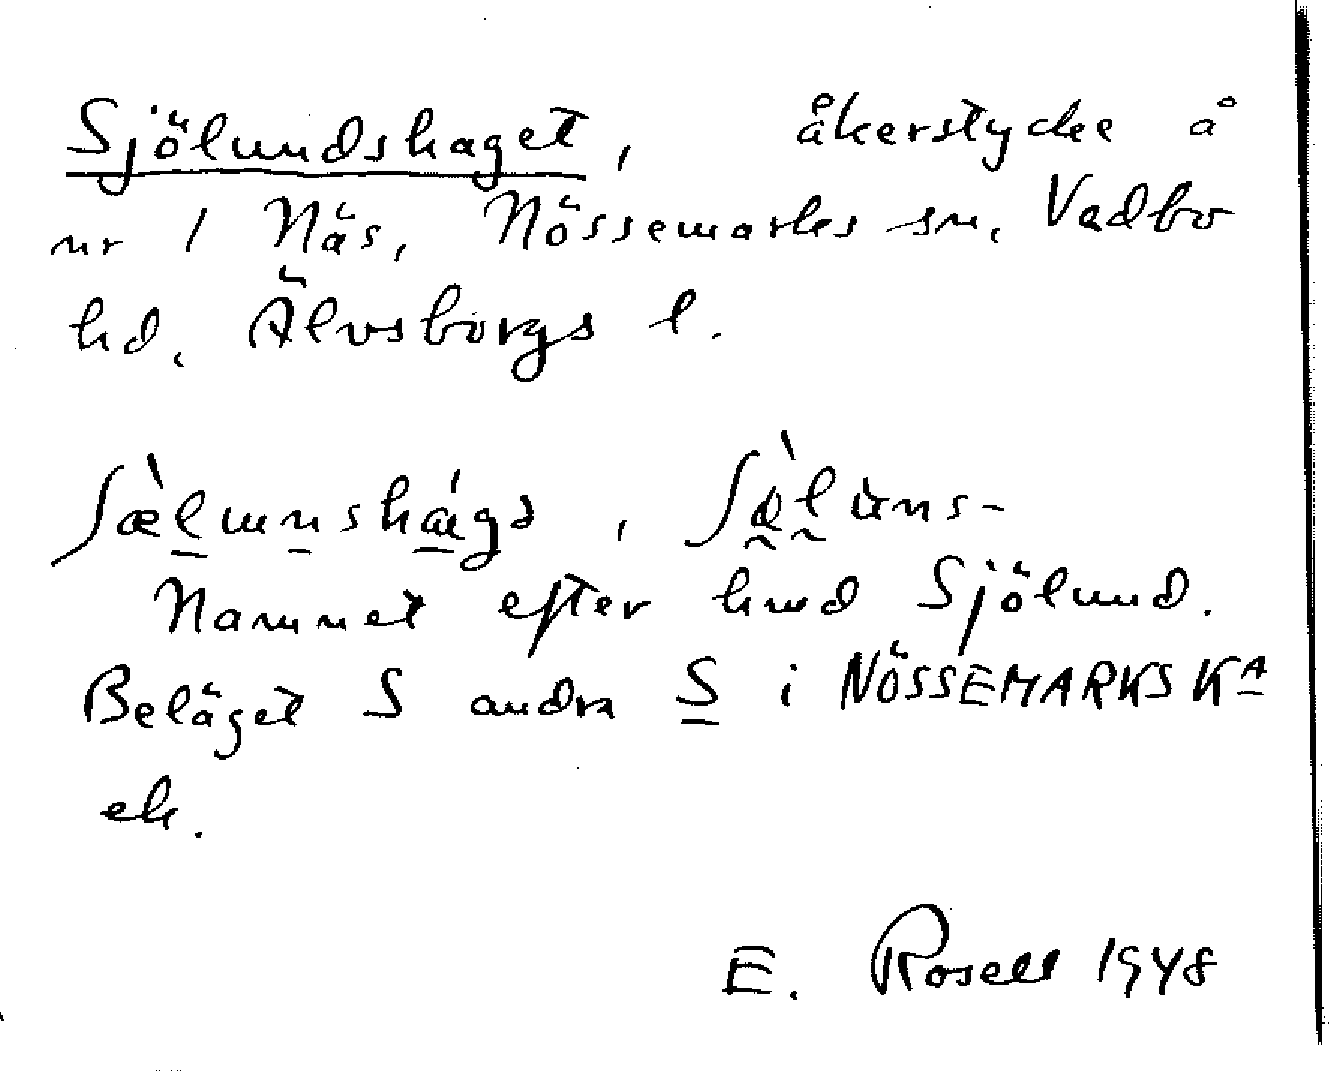 Sjölundshaget, åkerstycke å
nr 1 Näs, Nössemarks sn, Vedbo
hd, Älvsborgs l.
Namnet efter hmd Sjölund.
Beläget S andra S i NÖSSEMARKS KA
ek.
E. Rosell 1948